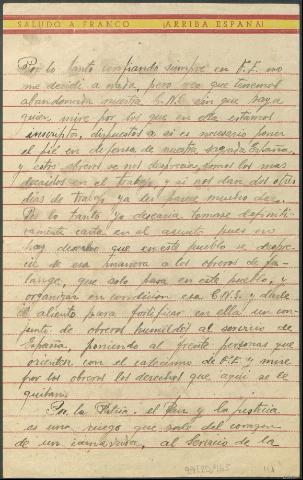 SALUDO A FRANCO ¡ARRIBA ESPAÑA!
Por lo tanto confiando siempre en V.E. no
me decido a nada, pero veo que tenemos
abandonada nuestra C.N.S. sin que haya
quien mire por los que en ella estamos
inscritos, dispuestos a si es necesario poner
el pié en defensa de nuestra sagrada España,
y estos obreros se nos desprecia, somos los mas
decaidos en el trabajo, y si nos dan dos o tres
dias de trabajo ya les parece mucho.
Por lo tanto yo desearia tomase definiti-
vamente carta en el asunto pues no
hay derecho que en este pueblo se despre-
cie de esa manera a los obreros de Fa-
lange, que solo pasa en este pueblo, y
organizar en condiciones esa C.N.S. y darle
de aliento para fortificar en ella un con-
junto de obreros humildes al servicio de
España, poniendo al frente personas que
orienten con el catecismo de F.E. y mire
por los obreros los derechos que aqui se le
quitan.
Por la Patria, el Pan y la justicia
es una ruego que sale del corazon
de un camarada, al Servicio de la